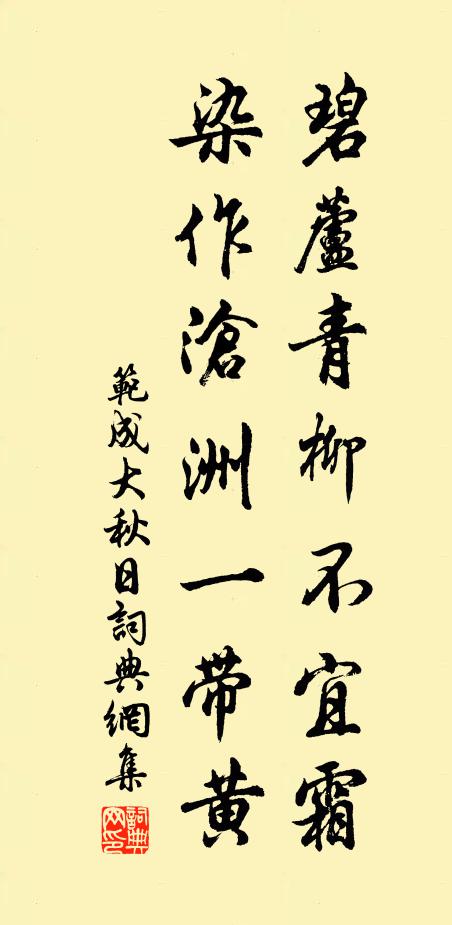 碧蘆青柳不宜霜
染作滄洲一帶黄
範成大秋日詞典網集
詞典網印